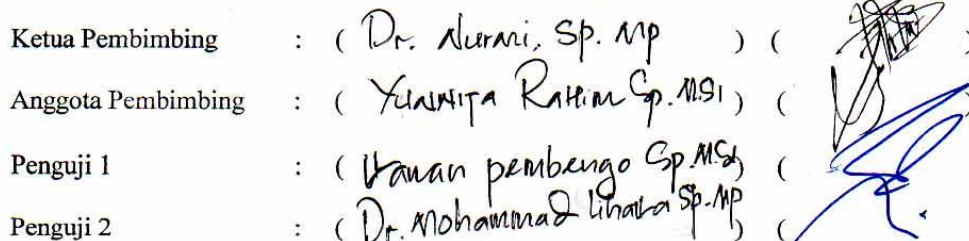 Ketua Pembimbing : ( Dr. Nurmi, Sp. MP ) ( )
Anggota Pembimbing : ( Yuannita Rahim Sp. MSi ) (
Penguji 1 : ( pembengo Sp. MSi ) (
Penguji 2 : ( Dr. Mohammad Sp. MP ) (